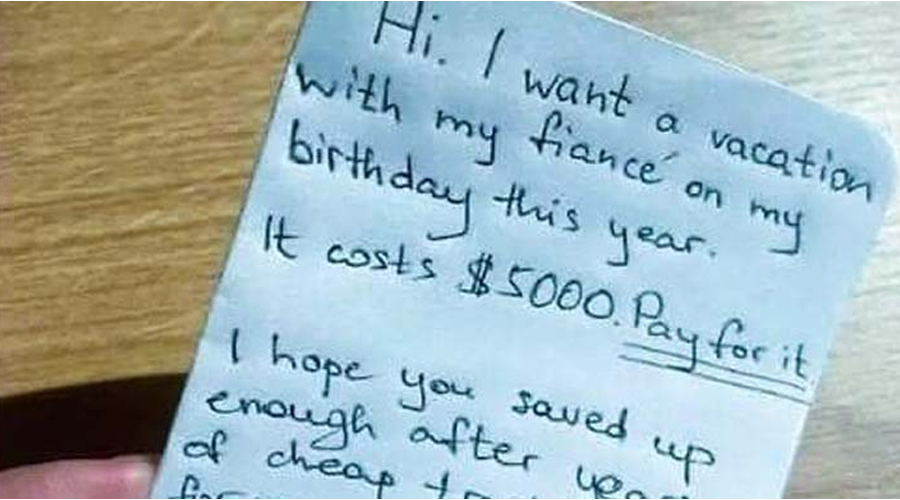 Hi. I want a vacation
with my fiancé on my
birthday this year.
It costs $5000. Pay for it
I hope you saved up
enough after
of cheap